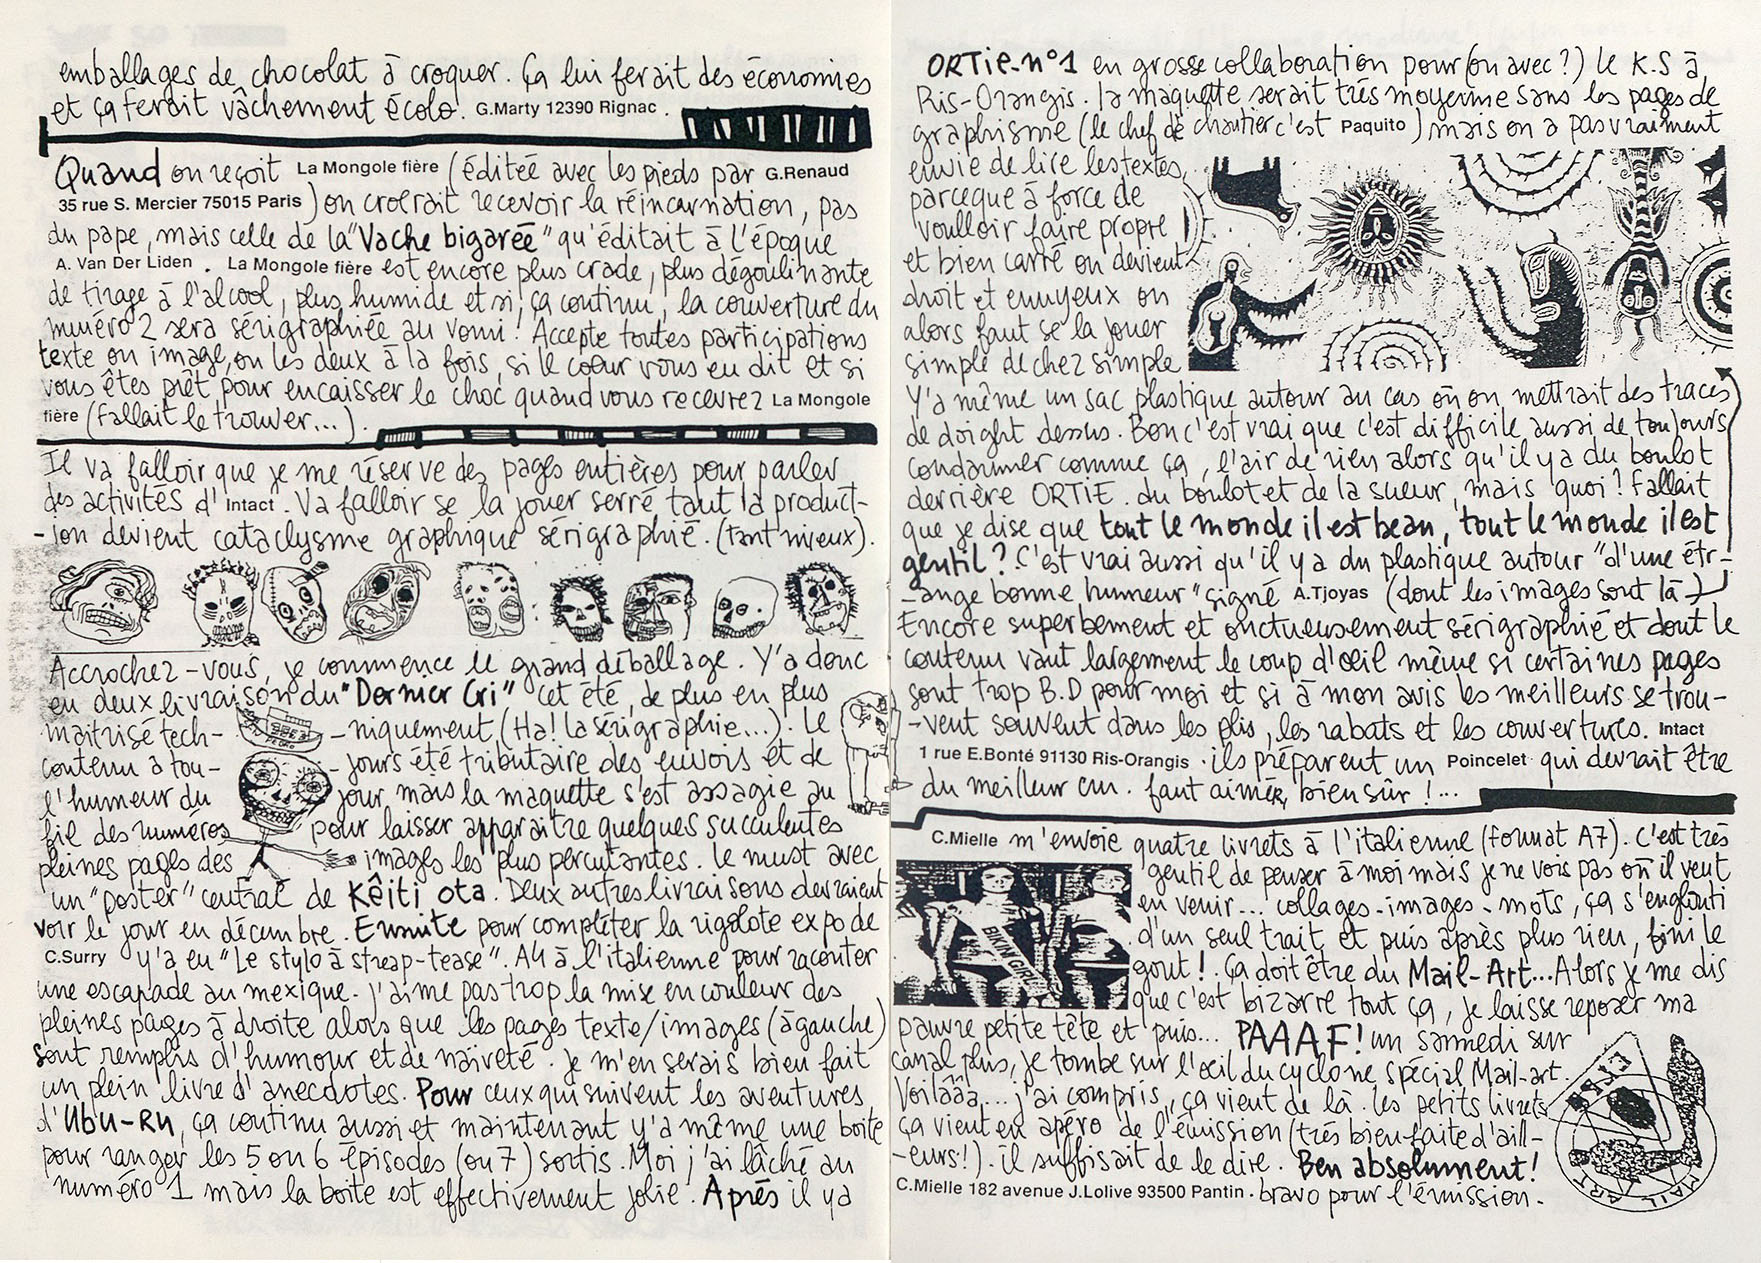 emballages de chocolat à croquer. Ça lui ferait des économies
et ça ferait vâchement écolo. G.Marty 12390 Rignac.
Quand on reçoit La Mongole fière (éditée avec les pieds par G.Renaud
35 rue S. Mercier 75015 Paris) on croirait recevoir la réincarnation, pas
du pape, mais celle de la "Vache bigarée" qu'éditait à l'époque
A. Van Der Liden. La Mongole fière est encore plus crade, plus dégoulinante
de tirage à l'alcool, plus humide et si ça continu, la couverture du
numéro 2 sera sérigraphiée au vomi! Accepte toutes participations
texte ou image, ou les deux à la fois, si le cœur vous en dit et si
vous êtes prêt pour encaisser le choc quand vous recevrez La Mongole
fière (fallait le trouver...).
Il va falloir que je me réserve des pages entières pour parler
des activités d'Intact. Va falloir se la jouer serré, tant la product-
-ion devient cataclysme graphique sérigraphié. (tant mieux).
Accrochez-vous, je commence le grand déballage. Y'a donc
eu deux livraison du "Dernier Cri" cet été, de plus en plus
maitrisé tech- -niquement (Ha! la sérigraphie...). Le
contenu à tou- -jours été tributaire des envois et de
l'humeur du jour mais la maquette s'est assagie au
fil des numéros pour laisser apparaître quelques succulentes
pleines pages des images les plus percutantes. Le must avec
un "poster" central de Kêiti ota. Deux autres livraisons devraient
voir le jour en décembre. Ensuite pour compléter la rigolote expo de
C.Surry y'a eu "Le stylo à streap-tease". A4 à l'italienne pour raconter
une escapade au mexique. J'aime pas trop la mise en couleur des
pleines pages à droite alors que les pages texte/images (à gauche)
sont remplis d'humour et de naïveté. Je m'en serais bien fait
un plein livre d'anecdotes. Pour ceux qui suivent les aventures
d'Ubu-Ru, ça continu aussi et maintenant y'a même une boite
pour ranger les 5 ou 6 épisodes (ou 7) sortis. Moi j'ai lâché au
numéro 1 mais la boite est effectivement jolie. Après il ya
ORTiE-n°1 en grosse collaboration pour (ou avec?) le K.S à
Ris-Orangis. la maquette serait très moyenne sans les pages de
graphisme (le chef de chantier c'est Paquito) mais on a pas vraiment
envie de lire les textes,
parceque à force de
voulloir faire propre
et bien carré on devient
droit et ennuyeux ou
alors faut se la jouer
simple de chez simple
Y'a même un sac plastique autour au cas où on mettrait des traces
de doight dessus. Bon c'est vrai que c'est difficile aussi de toujours
condamner comme ça, l'air de rien alors qu'il ya du boulot
derrière ORTiE. du boulot et de la sueur, mais quoi? Fallait
que je dise que tout le monde il est beau, tout le monde il est
gentil? C'est vrai aussi qu'il y a du plastique autour "d'une étr-
-ange bonne humeur" signé A.Tjoyas (dont les images sont là)
Encore superbement et onctueusement sérigraphié et dont le
contenu vaut largement le coup d'œil même si certaines pages
sont trop B.D pour moi et si à mon avis les meilleurs se trou-
-vent souvent dans les plis, les rabats et les couvertures. Intact
1 rue E.Bonté 91130 Ris-Orangis. ils préparent un Poincelet qui devrait être
du meilleur cru. faut aimer, bien sûr!...
C.Mielle m'envoie quatre livrets à l'italienne (format A7). C'est très
gentil de penser à moi mais je ne vois pas où il veut
en venir... collages-images-mots, ça s'englouti
d'un seul trait et puis après plus rien, fini le
gout!. Ça doit être du Mail-Art... Alors je me dis
que c'est bizarre tout ça, je laisse reposer ma
pauvre petite tête et puis... PAAAF! un samedi sur
canal plus, je tombe sur l'œil du cyclone spécial Mail-art.
Voilâââ... j'ai compris, ça vient de là. les petits livrets
ça vient en apéro de l'émission (très bien faite d'aill-
-eurs!). il suffisait de le dire. Ben absolument!
C.Mielle 182 avenue J.Lolive 93500 Pantin. bravo pour l'émission.
BIKINI GIRL
MAIL ART